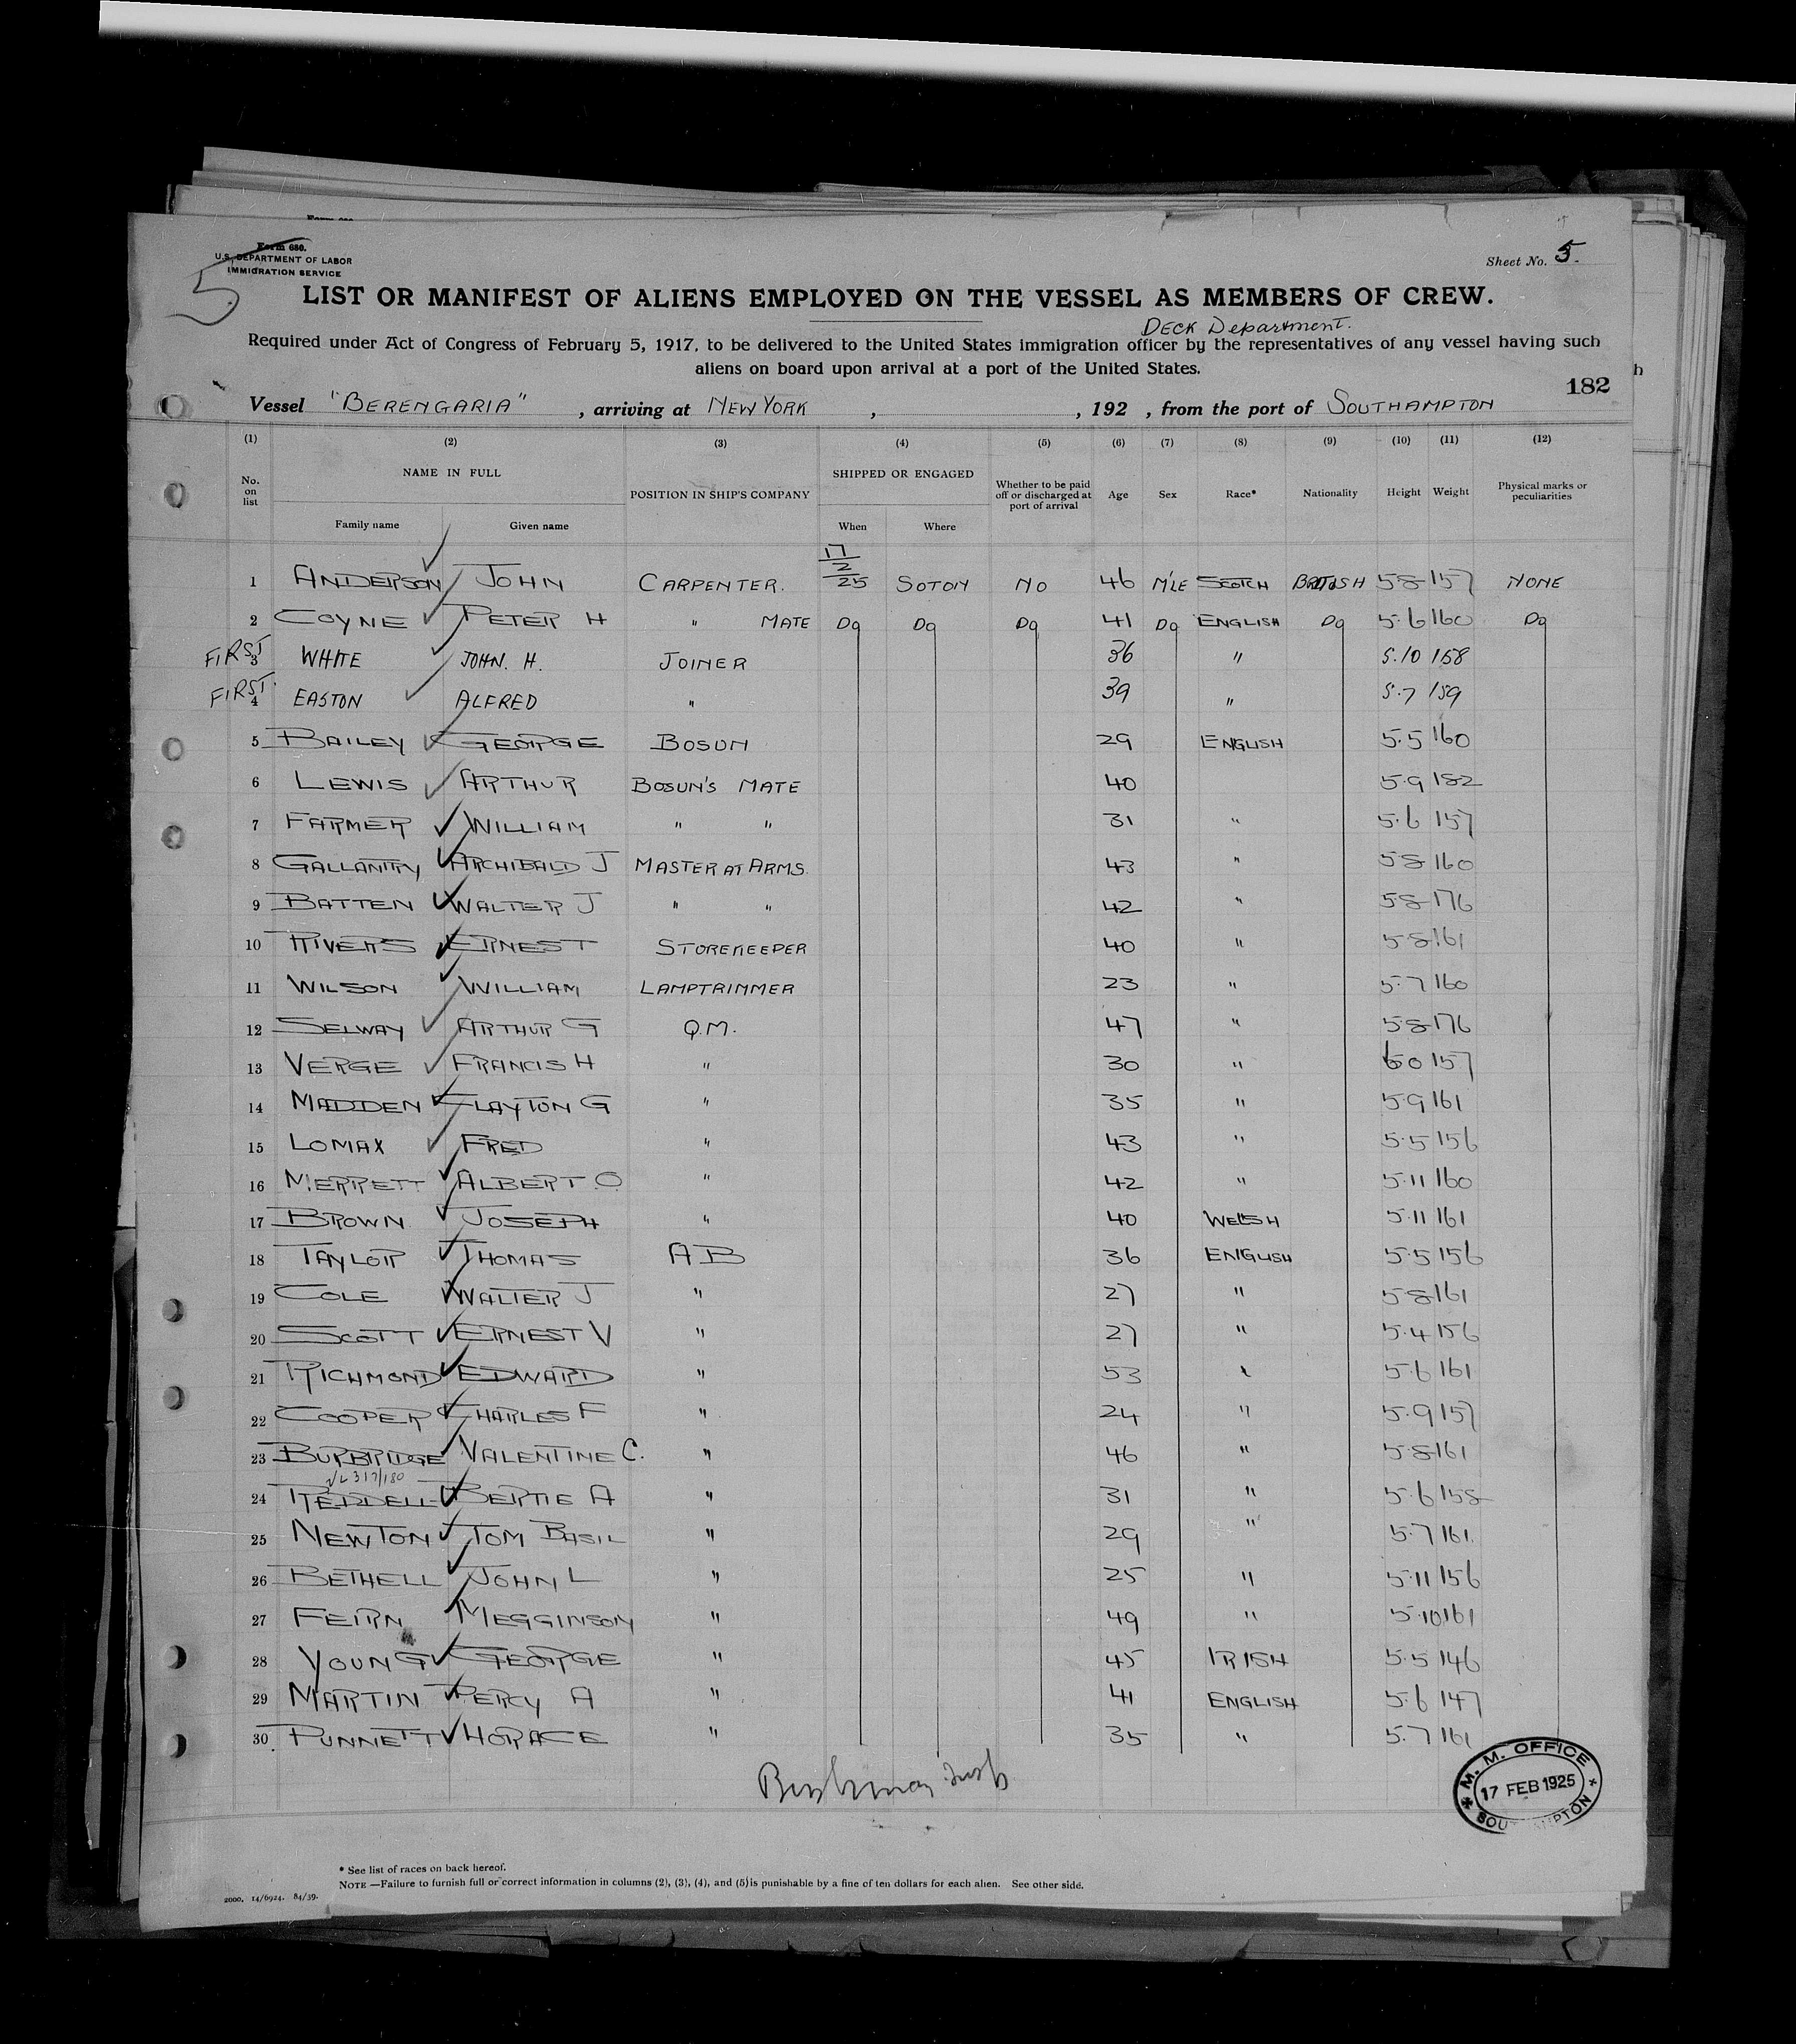 Form 680.
U.S. DEPARTMENT OF LABOR
IMMIGRATION SERVICE
5
Sheet No. 5.
LIST OR MANIFEST OF ALIENS EMPLOYED ON THE VESSEL AS MEMBERS OF CREW.
DECK Department.
Required under Act of Congress of February 5, 1917, to be delivered to the United States immigration officer by the representatives of any vessel having such
aliens on board upon arrival at a port of the United States.
182
Vessel "BERENGARIA" , arriving at NEW YORK , , 192 , from the port of SOUTHAMPTON
(1) (2) (3) (4) (5) (6) (7) (8) (9) (10) (11) (12)
No. on list NAME IN FULL POSITION IN SHIP'S COMPANY SHIPPED OR ENGAGED Whether to be paid off or discharged at port of arrival Age Sex Race* Nationality Height Weight Physical marks or peculiarities
Family name Given name When Where
1 ANDERSON JOHN CARPENTER. 17/2/25 SOTON NO 46 M'LE SCOTCH BRITISH 5·8 157 NONE
2 COYNE PETER H " MATE Do Do Do 41 Do ENGLISH Do 5·6 160 Do
FIRST 3 WHITE JOHN. H. JOINER 36 " 5.10 158
FIRST 4 EASTON ALFRED " 39 " 5.7 159
5 BAILEY GEORGE BOSUN 29 ENGLISH 5·5 160
6 LEWIS ARTHUR BOSUN'S MATE 40 5·9 182
7 FARMER WILLIAM " " 31 " 5·6 157
8 GALLANTRY ARCHIBALD J MASTER AT ARMS. 43 " 5·8 160
9 BATTEN WALTER J " " 42 " 5·8 176
10 RIVERS ERNEST STOREKEEPER 40 " 5·8 161
11 WILSON WILLIAM LAMPTRIMMER 23 " 5·7 160
12 SELWAY ARTHUR G Q.M. 47 " 5·8 176
13 VERGE FRANCIS H " 30 " 6·0 157
14 MADDEN CLAYTON G " 35 " 5·9 161
15 LOMAX FRED " 43 " 5·5 156
16 MERRETT ALBERT O " 42 " 5·11 160
17 BROWN JOSEPH " 40 WELSH 5·11 161
18 TAYLOR THOMAS A B 36 ENGLISH 5·5 156
19 COLE WALTER J " 27 " 5·8 161
20 SCOTT ERNEST V " 27 " 5·4 156
21 RICHMOND EDWARD " 53 " 5·6 161
22 COOPER CHARLES F " 24 " 5·9 157
23 BURBRIDGE VALENTINE C. " 46 " 5·8 161
317/180
24 REDDELL BERTIE A " 31 " 5·6 158
25 NEWTON TOM BASIL " 29 " 5·7 161
26 BETHELL JOHN L " 25 " 5·11 156
27 FEIRN MEGGINSON " 49 " 5·10 161
28 YOUNG GEORGE " 45 IRISH 5·5 146
29 MARTIN PERCY A " 41 ENGLISH 5·6 147
30 PUNNETT HORACE " 35 " 5·7 161
M. M. OFFICE
17 FEB 1925
SOUTHAMPTON
* See list of races on back hereof.
NOTE —Failure to furnish full or correct information in columns (2), (3), (4), and (5) is punishable by a fine of ten dollars for each alien. See other side.
2000. 14/6924. 84/39.